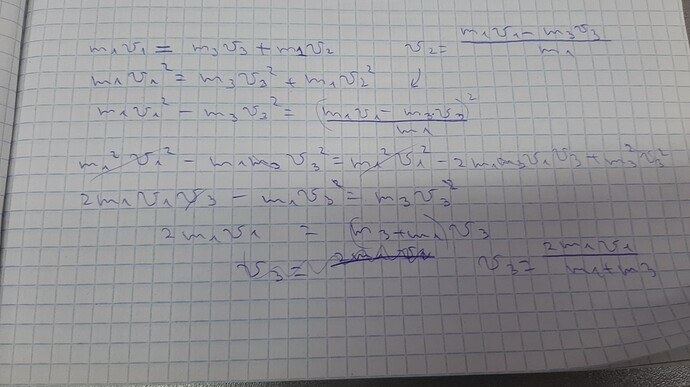 m₁v₁ = m₃v₃ + m₁v₂    v₂ = (m₁v₁ - m₃v₃)/m₁
m₁v₁² = m₃v₃² + m₁v₂²    ↓
m₁v₁² - m₃v₃² = (m₁v₁ - m₃v₃)²/m₁
m₁²v₁² - m₁m₃v₃² = m₁²v₁² - 2m₁m₃v₁v₃ + m₃²v₃²
2m₁v₁v₃ - m₁v₃² = m₃v₃²
2m₁v₁ = (m₃+m₁)v₃
v₃ =    v₃ = 2m₁v₁/(m₁+m₃)